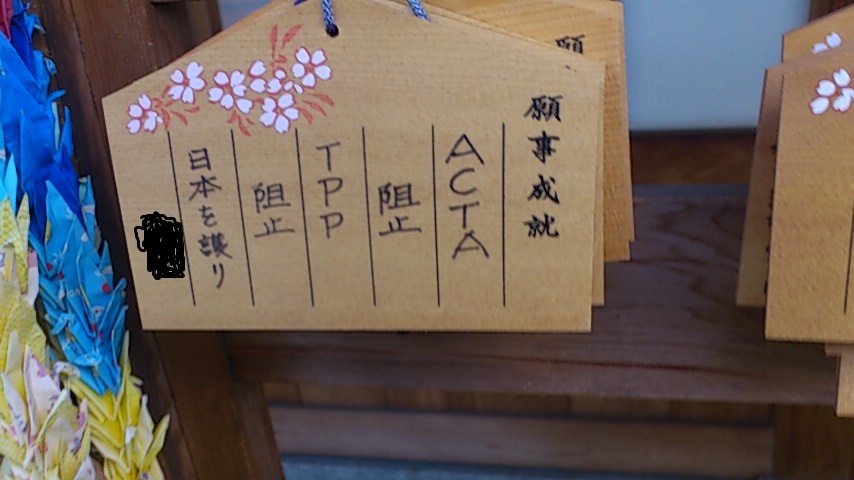 願事成就
ACTA
阻止
TPP
阻止
日本を護り
願